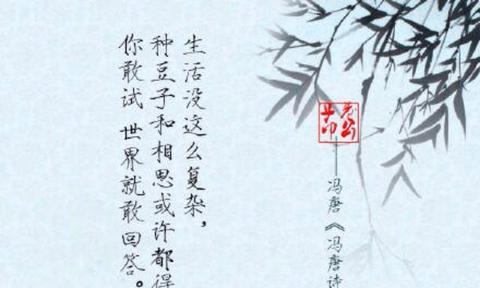 生活没这么复杂，
种豆子和相思或许都得
你敢试 世界就敢回答。
——冯唐《冯唐诗